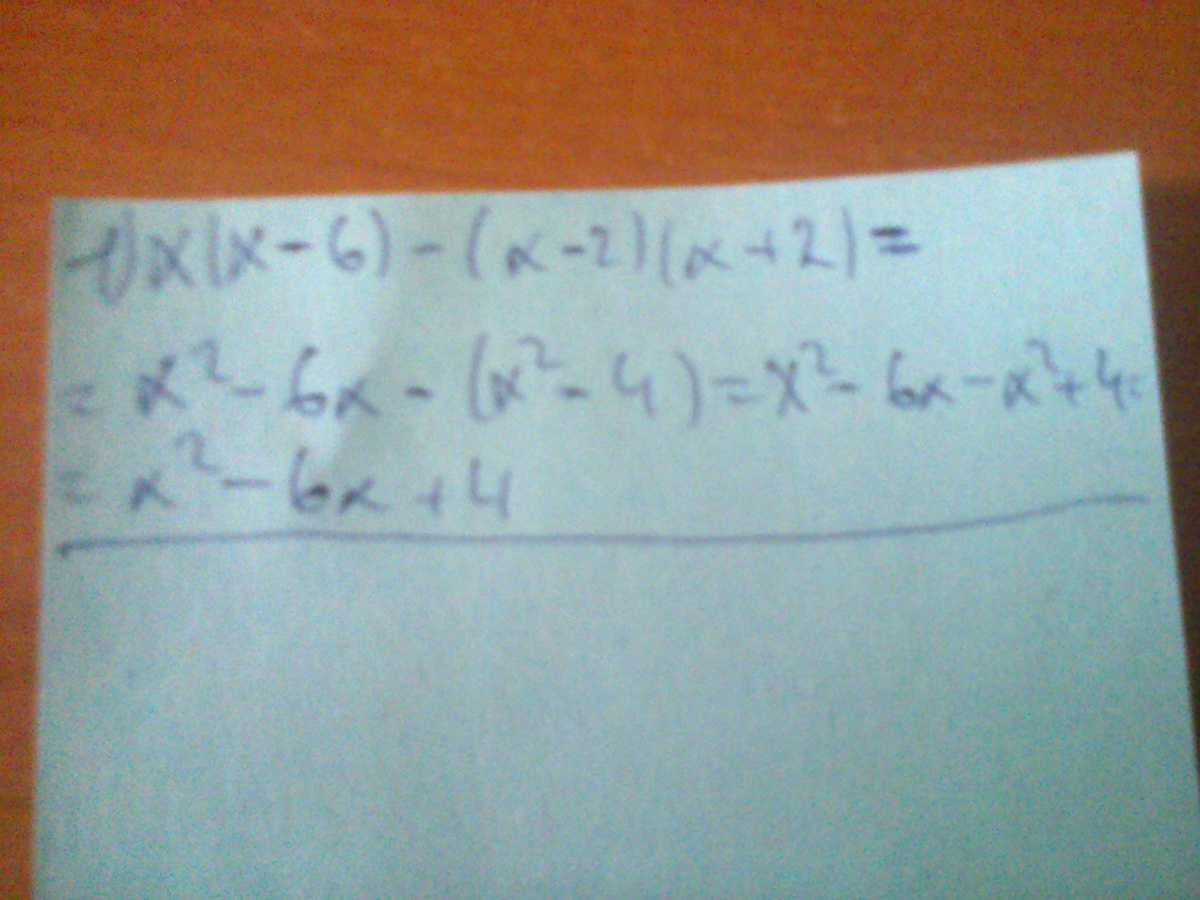 1) x(x-6)-(x-2)(x+2)=
= x²-6x-(x²-4)=x²-6x-x²+4=
= x²-6x+4